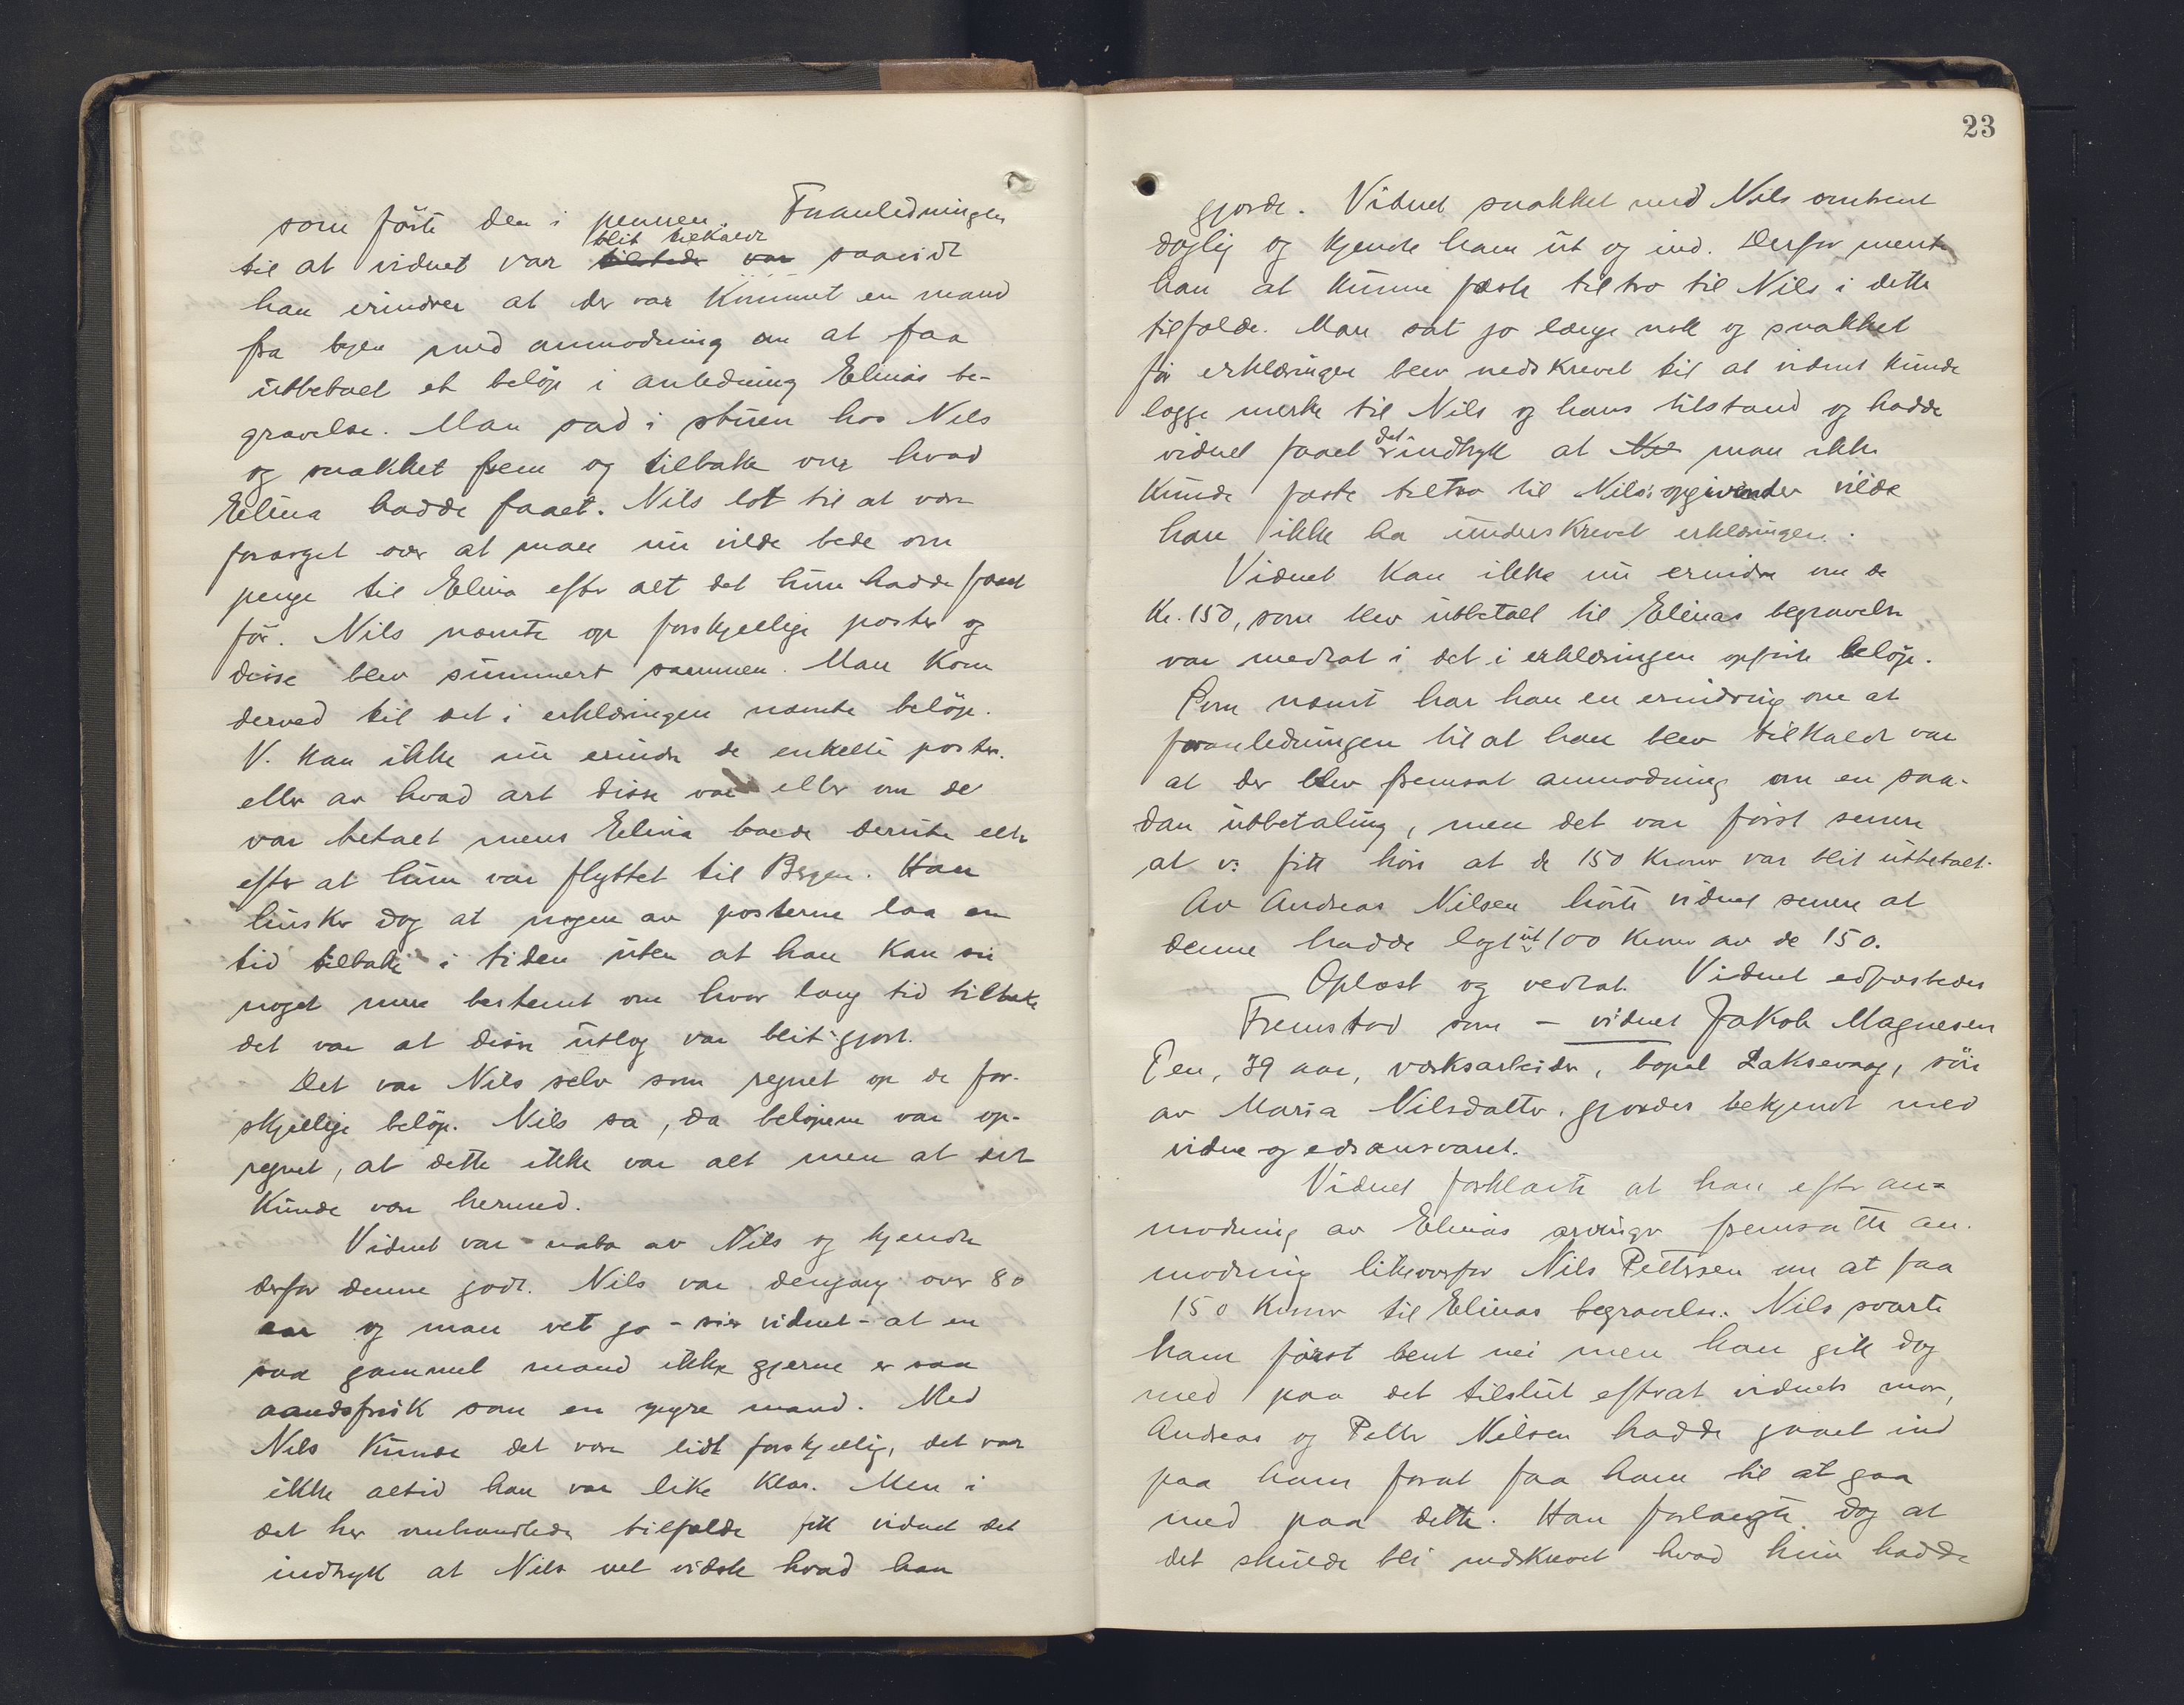 som förte den i pennen. Foranledningen
til at vidnet var blit tilkaldt saavidt
han erindrer at der var kommet en mand
fra byen med anmodning om at faa
utbetalt et belöp i anledning Elinas be-
gravelse. Man sad i stuen hos Nils
og snakket frem og tilbake om hvad
Elina hadde faaet. Nils lot til at være
forarget over at man nu vilde bede om
penge til Elina efter alt det hun hadde faaet
för. Nils nævnte op forskjellige poster og
disse blev summert sammen. Man kom
derved til det i erklæringen nævnte belöp.
V. kan ikke nu erindre de enkelte poster.
eller av hvad art disse var eller om de
var betalt mens Elina boede derute eller
efter at hun var flyttet til Bergen. Han
husker dog at nogen av posterne laa en
tid tilbake i tiden uten at han kan si
noget mere bestemt om hvor lang tid tilbake
det var at disse utlæg var blit gjort.
Det var Nils selv som regnet op de for-
skjellige belöp. Nils sa, da belöpene var op-
regnet, at dette ikke var alt men at det
kunde være hermed.
Vidnet var nabo av Nils og kjendte
derfor denne godt. Nils var dengang over 80
aar og man vet jo - sier vidnet - at en
saa gammel mand ikke gjerne er saa
aandsfrisk som en yngre mand. Med
Nils kunde det være lidt forskjellig, det var
ikke altid han var like klar. Men i
det her omhandlede tilfælde fik vidnet det
indtryk at Nils vel vidste hvad han
23
gjorde. Vidnet snakket med Nils omtrent
daglig og kjendte ham ut og ind. Derfor mente
han at kunne fæste tiltro til Nils i dette
tilfælde. Man sat jo længe nok og snakket
för erklæringen blev nedskrevet til at vidnet kunde
lægge merke til Nils og hans tilstand og hadde
vidnet faaet det indtryk at man ikke
kunde fæste tiltro til Nils: opgivender vilde
han ikke ha underskrevet erklæringen.
Vidnet kan ikke nu erindre om de
Kr. 150, som blev utbetalt til Elinas begravelse
var medtat i det i erklæringen opförte belöp.
Som nævnt har han en erindring om at
foranledningen til at han blev tilkaldt var
at der blev fremsat anmodning om en saa-
dan utbetaling, men det var först senere
at v: fik höre at de 150 kroner var blit utbetalt.
Av Andreas Nilsen hörte vidnet senere at
denne hadde lagt ut 100 kroner av de 150.
Oplæst og vedtat. Vidnet edfæstedes
Fremstod som - vidnet Jakob Magnesen
39 aar, verksarbeider, bopæl Laksevaag, sön
av Maria Nilsdatter. gjordes bekjendt med
vidne og edsansvaret.
Vidnet forklarte at han efter an=
modning av Elinas arvinger fremsatte an-
modning likeoverfor Nils Pettersen om at faa
150 kroner til Elinas begravelse. Nils svarte
ham först bent nei men han gik dog
med paa det tilslut efterat vidnets mor,
Andreas og Petter Nilsen hadde gaaet ind
paa ham forat faa ham til at gaa
med paa dette. Han forlangte dog at
det skulde bli nedskrevet hvad hun hadde